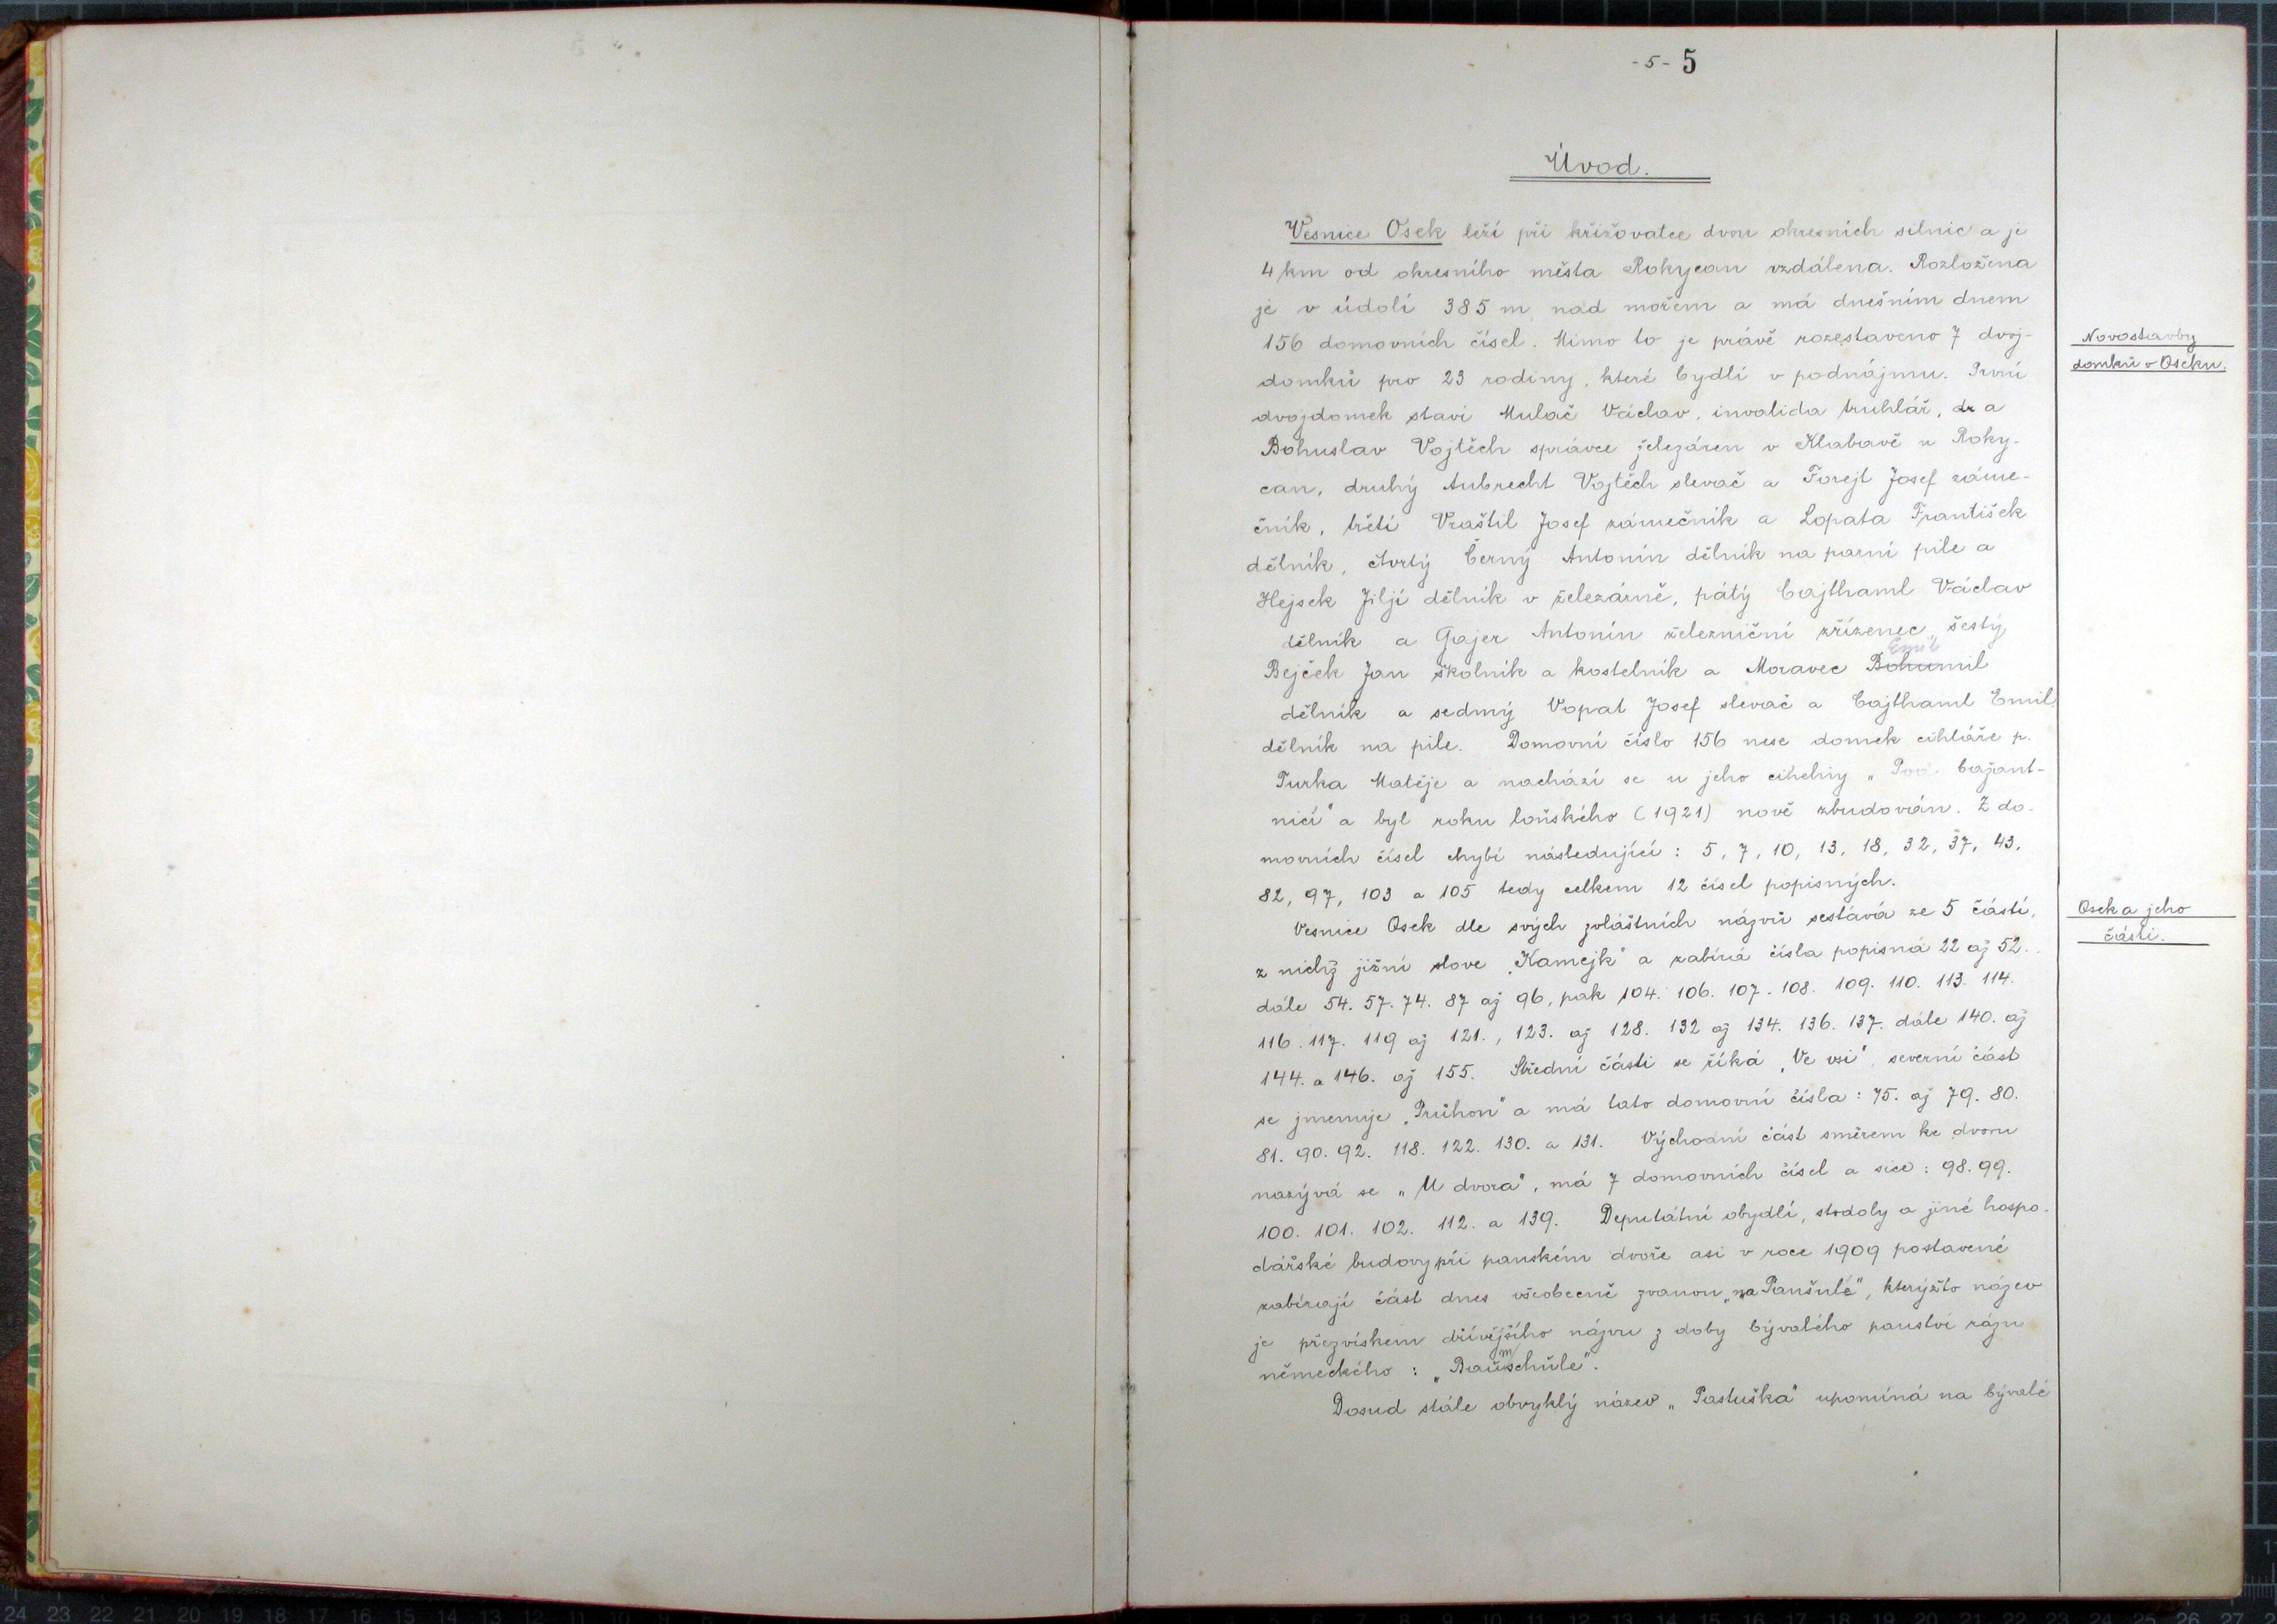 - 5 - 5
Úvod.
Vesnice Osek leží při křižovatce dvou okresních silnic a je
4 km od okresního města Rokycan vzdálena. Rozložena
je v údolí 385 m nad mořem a má dnešním dnem
156 domovních čísel. Mimo to je právě rozestaveno 7 dvoj-
domků pro 23 rodiny, které bydlí v podnájmu. První
dvojdomek staví Mulač Václav, invalida truhlář, a
Bohuslav Vojtěch správce železáren v Klabavě u Roky-
can, druhý Aubrecht Vojtěch slevač a Forejt Josef záme-
čník, třetí Vraštil Josef zámečník a Lopata František
dělník, čtvrtý Černý Antonín dělník na parní pile a
Hejsek Jiljí dělník v železárně, pátý Cajthaml Václav
dělník a Gajer Antonín železniční zřízenec, šestý
Emil
Bejček Jan školník a kostelník a Moravec Bohumil
dělník a sedmý Vopat Josef slevač a Cajthaml Emil,
dělník na pile. Domovní číslo 156 nese domek cihláře p.
Turka Matěje a nachází se u jeho cihelny „Pod bažant-
nicí" a byl roku loňského (1921) nově zbudován. Z do-
movních čísel chybí následující: 5, 7, 10, 13, 18, 32, 37, 43,
82, 97, 103 a 105 tedy celkem 12 čísel popisných.
Vesnice Osek dle svých zvláštních názvů sestává ze 5 částí,
z nichž jižní slove „Kamejk" a zabírá čísla popisná 22 až 52.
dále 54. 57. 74. 87 až 96, pak 104. 106. 107. 108. 109. 110. 113. 114.
116. 117. 119 až 121., 123. až 128. 132 až 134. 136. 137. dále 140. až
144. a 146. až 155. Střední části se říká „Ve vsi", severní část
se jmenuje „Průhon" a má tato domovní čísla: 75. až 79. 80.
81. 90. 92. 118. 122. 130. a 131. Východní část směrem ke dvoru
nazývá se „U dvora", má 7 domovních čísel a sice: 98. 99.
100. 101. 102. 112. a 139. Deputátní obydlí, stodoly a jiné hospo-
dářské budovy při panském dvoře asi v roce 1909 postavené
zabírají část dnes všeobecně zvanou „na Paušule", kterýžto název
je přezvískem dřívějšího názvu z doby bývalého panství rázu
německého: „Baumschule".
Dosud stále obvyklý název „Pastuška" upomíná na bývalé
Novostavby
domků v Oseku.
Osek a jeho
části.